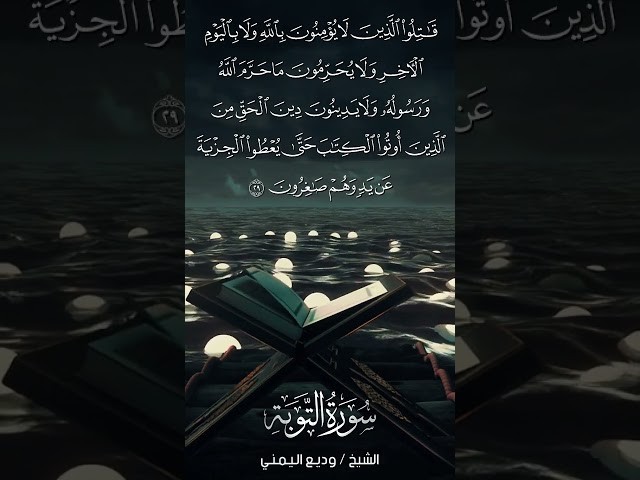 قَٰتِلُوا۟ ٱلَّذِينَ لَا يُؤْمِنُونَ بِٱللَّهِ وَلَا بِٱلْيَوْمِ
ٱلْءَاخِرِ وَلَا يُحَرِّمُونَ مَا حَرَّمَ ٱللَّهُ
وَرَسُولُهُۥ وَلَا يَدِينُونَ دِينَ ٱلْحَقِّ مِنَ
ٱلَّذِينَ أُوتُوا۟ ٱلْكِتَٰبَ حَتَّىٰ يُعْطُوا۟ ٱلْجِزْيَةَ
عَن يَدٍ وَهُمْ صَٰغِرُونَ ٢٩
سُورَةُ التَّوْبَةِ
الشيخ / وديع اليمني